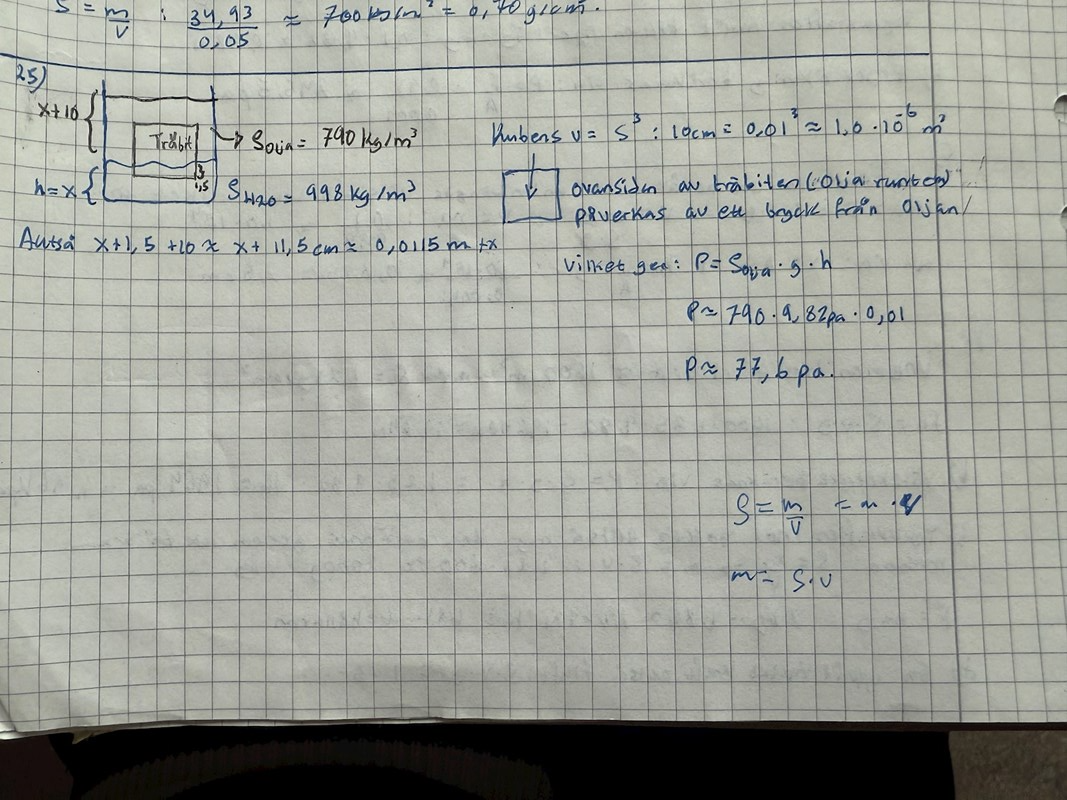 S = m/v : 34,93/0,05 ≈ 700 kg/m³ = 0,70 g/cm³.
25)
x+10
Träbit
→ Solja = 790 kg/m³
h=x
1,5
SH2O = 998 kg/m³
Alltså x+1,5 +10 ≈ x+ 11,5 cm ≈ 0,0115 m +x
Kubens v = s³ : 10cm = 0,01³ ≈ 1,0 · 10⁻⁶ m³
ovansidan av träbiten (olja runt)
påverkas av ett tryck från oljan/
vilket ger: P = Solja · g · h
P ≈ 790 · 9,82 pa · 0,01
P ≈ 77,6 pa.
S = m/v = m · v
m = S · v